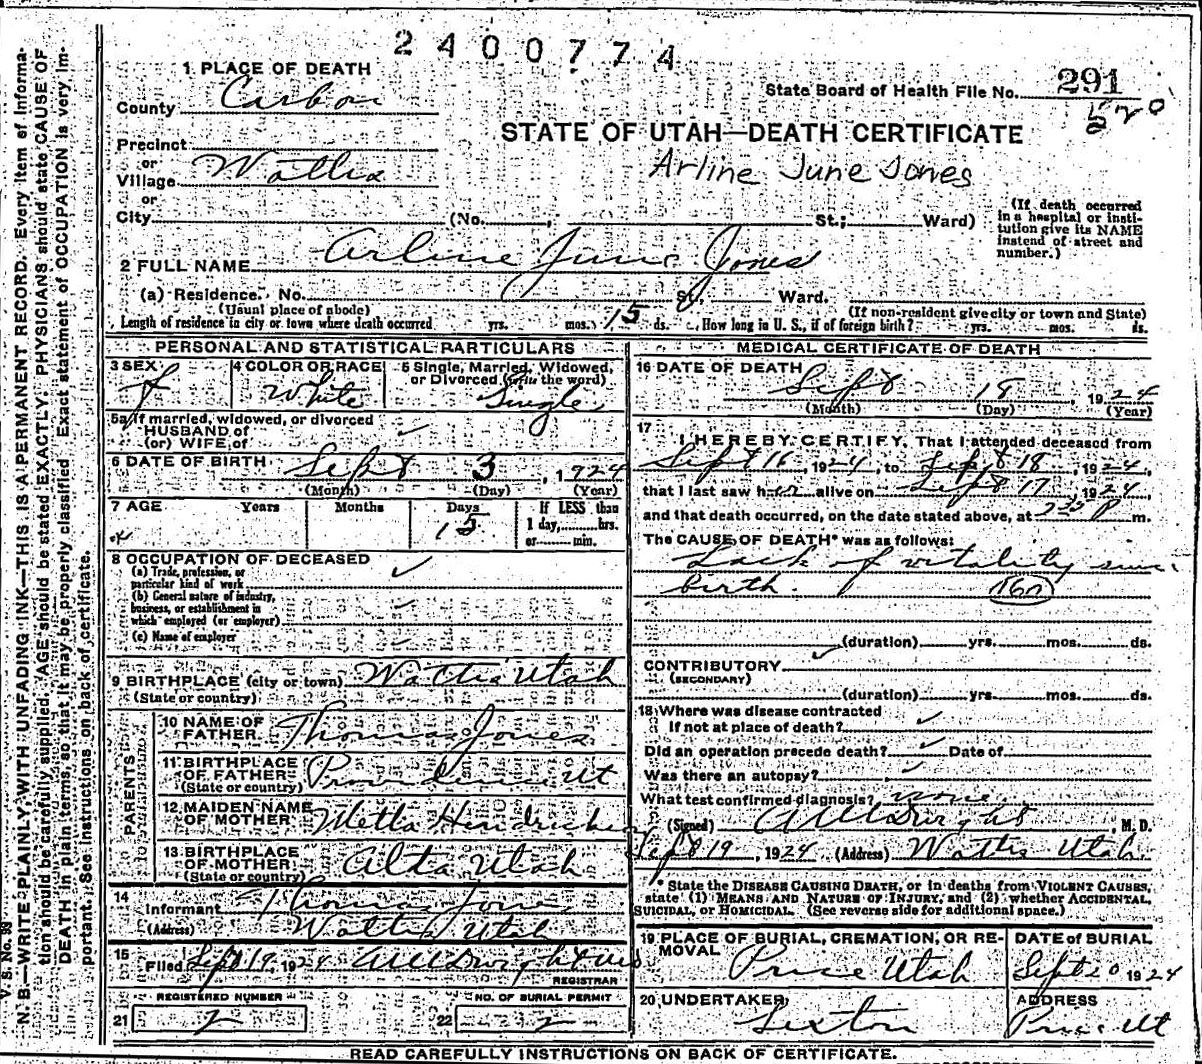 2400774
1 PLACE OF DEATH
State Board of Health File No. 291
County Carbon
520
STATE OF UTAH—DEATH CERTIFICATE
Precinct
or
Village Wattis
Arline June Jones
or
City (No. St.; Ward)
(If death occurred in a hospital or institution give its NAME instead of street and number.)
2 FULL NAME Arline June Jones
(a) Residence. No. St., Ward.
(Usual place of abode) (If non-resident give city or town and State)
Length of residence in city or town where death occurred yrs. mos. 15 ds. How long in U. S., if of foreign birth? yrs. mos. ds.
PERSONAL AND STATISTICAL PARTICULARS
3 SEX f 4 COLOR OR RACE White 5 Single, Married, Widowed, or Divorced (write the word) Single
5a If married, widowed, or divorced
HUSBAND of
(or) WIFE of
6 DATE OF BIRTH Sept 3, 1924
(Month) (Day) (Year)
7 AGE Years Months Days If LESS than
15 1 day, hrs.
or min.
8 OCCUPATION OF DECEASED
(a) Trade, profession, or
particular kind of work
(b) General nature of industry,
business, or establishment in
which employed (or employer)
(c) Name of employer
9 BIRTHPLACE (city or town) Wattis Utah
(State or country)
PARENTS
10 NAME OF FATHER Thomas Jones
11 BIRTHPLACE OF FATHER Providence Ut
(State or country)
12 MAIDEN NAME OF MOTHER Metta
13 BIRTHPLACE OF MOTHER Alta Utah
(State or country)
14
Informant Thomas Jones
(Address) Wattis Utah
15
Filed Sept 19, 1924
REGISTRAR
REGISTERED NUMBER NO. OF BURIAL PERMIT
21 2 22 2
MEDICAL CERTIFICATE OF DEATH
16 DATE OF DEATH
Sept 18 1924
(Month) (Day) (Year)
17
I HEREBY CERTIFY, That I attended deceased from
Sept 16, 1924, to Sept 18, 1924,
that I last saw her alive on Sept 17, 1924,
and that death occurred, on the date stated above, at P m.
The CAUSE OF DEATH* was as follows:
Lack of vitality since
birth. 160
(duration) yrs. mos. ds.
CONTRIBUTORY
(SECONDARY)
(duration) yrs. mos. ds.
18 Where was disease contracted
If not at place of death?
Did an operation precede death? Date of
Was there an autopsy?
What test confirmed diagnosis? none
(Signed) Dwight, M. D.
Sept 19, 1924 (Address) Wattis Utah
* State the DISEASE CAUSING DEATH, or in deaths from VIOLENT CAUSES,
state (1) MEANS AND NATURE OF INJURY, and (2) whether ACCIDENTAL,
SUICIDAL, or HOMICIDAL. (See reverse side for additional space.)
19 PLACE OF BURIAL, CREMATION, OR REMOVAL DATE of BURIAL
Price Utah Sept 20 1924
20 UNDERTAKER ADDRESS
Sexton Price Ut
READ CAREFULLY INSTRUCTIONS ON BACK OF CERTIFICATE.
V. S. No. 99
N. B.—WRITE PLAINLY WITH UNFADING INK—THIS IS A PERMANENT RECORD. Every item of informa-
tion should be carefully supplied. AGE should be stated EXACTLY. PHYSICIANS should state CAUSE OF
DEATH in plain terms, so that it may be properly classified. Exact statement of OCCUPATION is very im-
portant. See instructions on back of certificate.